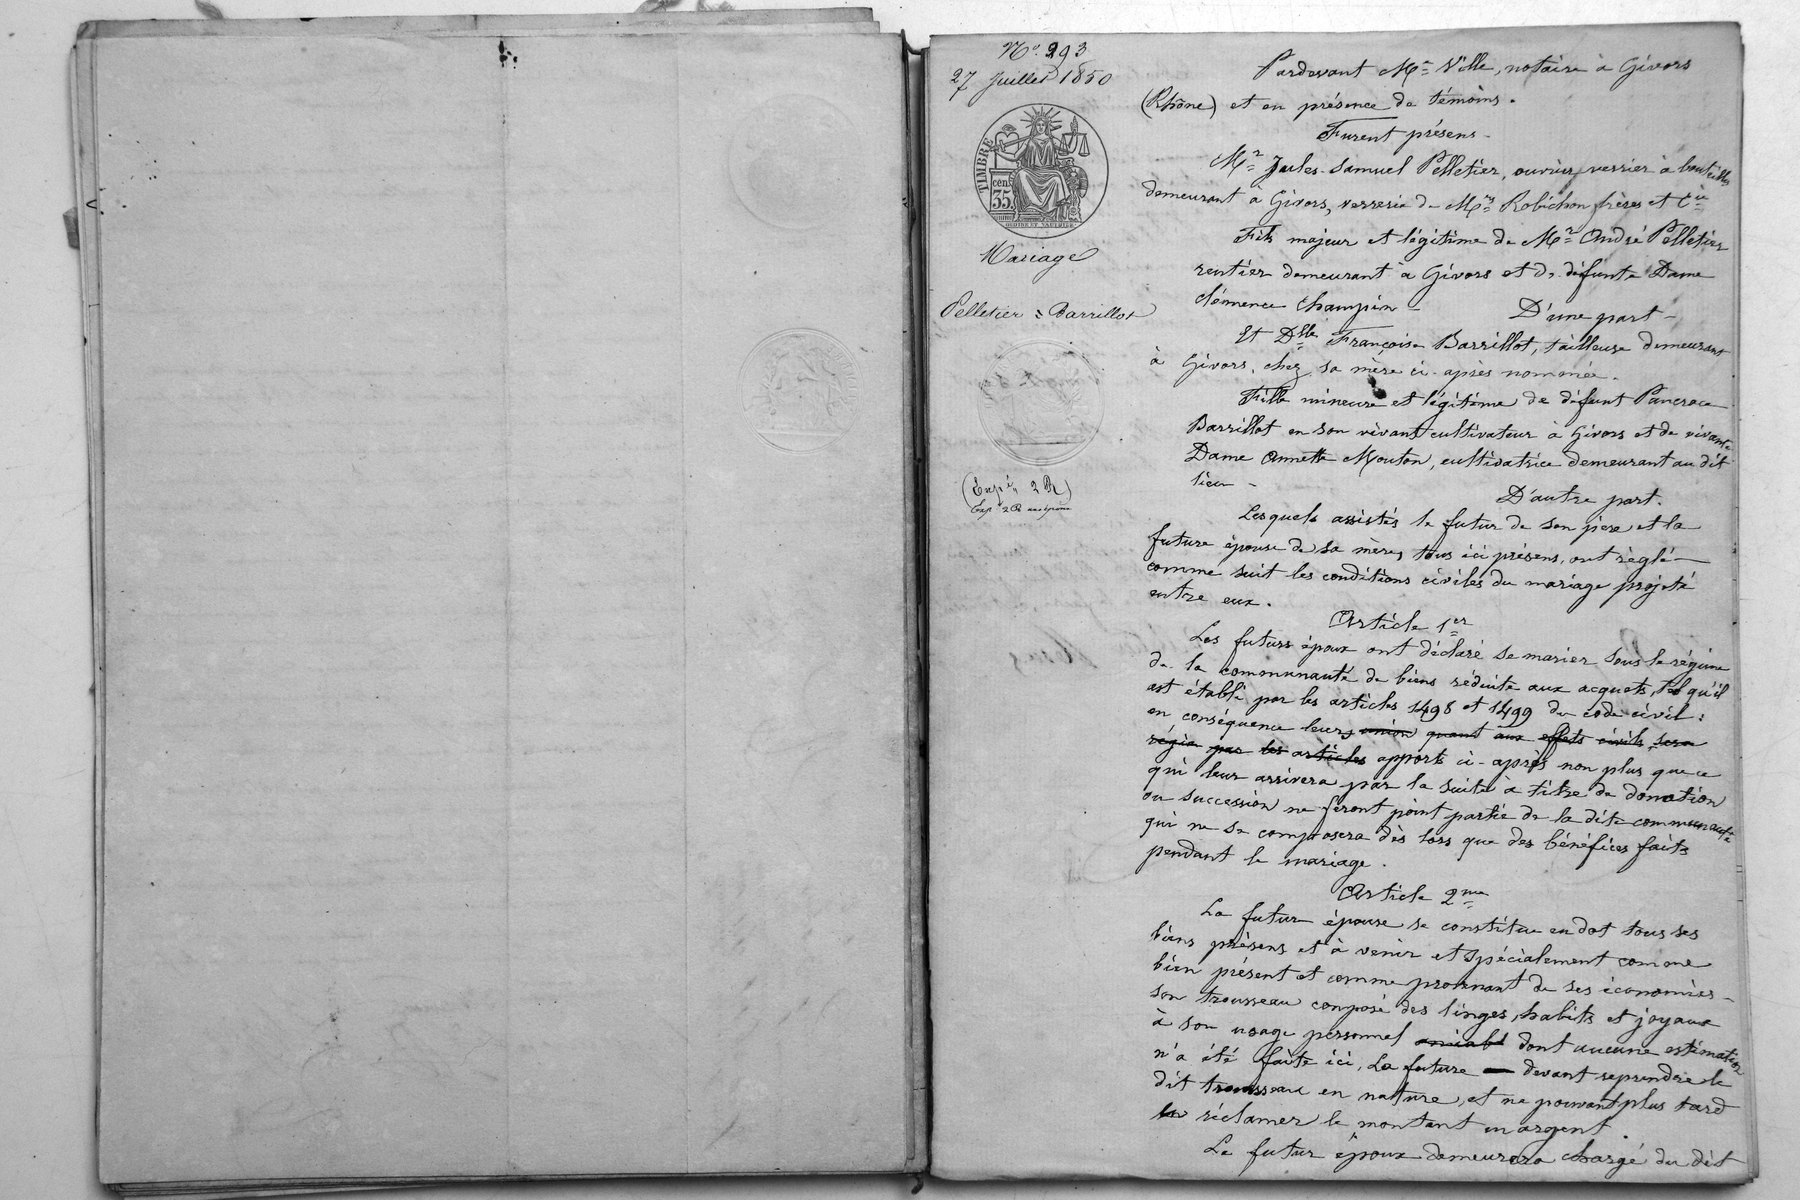 N° 293
27 Juillet 1850
TIMBRE
35 cen.
Mariage
Pelletier = Barrillot
(Exp.é 2 R)
Pardevant Me Ville, notaire à Givors
(Rhône) et en présence de témoins.
Furent présens -
Mr Jules-Samuel Pelletier, ouvrier verrier à bouteilles
demeurant à Givors, verrerie de Mrs Robichon frères et Cie
Fils majeur et légitime de Mr André Pelletier
rentier demeurant à Givors et de défunte Dame
Clémence Champin - D'une part -
Et Dlle Françoise Barrillot, tailleuse demeurant
à Givors, chez sa mère ci-après nommée.
Fille mineure et légitime de défunt Pancrace
Barrillot en son vivant cultivateur à Givors et de vivante
Dame Annette Mouton, cultivatrice demeurant au dit
lieu - D'autre part.
Lesquels assistés le futur de son père et la
future épouse de sa mère, tous ici présens, ont règlé -
comme suit les conditions civiles du mariage projeté
entre eux.
Article 1er
Les futurs époux ont déclaré se marier sous le régime
de la communauté de biens réduite aux acquets, tel qu'il
est établi par les articles 1498 et 1499 du code civil :
en conséquence leurs union quant aux effets civils sera
régie par les articles apports ci-après non plus que ce
qui leur arrivera par la suite à titre de donation
ou succession ne feront point partie de la dite communauté
qui ne se composera dès lors que des bénéfices faits
pendant le mariage.
Article 2me
La future épouse se constitue en dot tous ses
biens présens et à venir et spécialement comme
bien présent et comme provenant de ses économies -
son trousseau composé des linges, habits et joyaux
à son usage personnel dont aucune estimation
n'a été faite ici, la future devant reprendre le
dit trousseau en nature, et ne pouvant plus tard
en réclamer le montant en argent.
Le futur époux demeurera chargé du dit